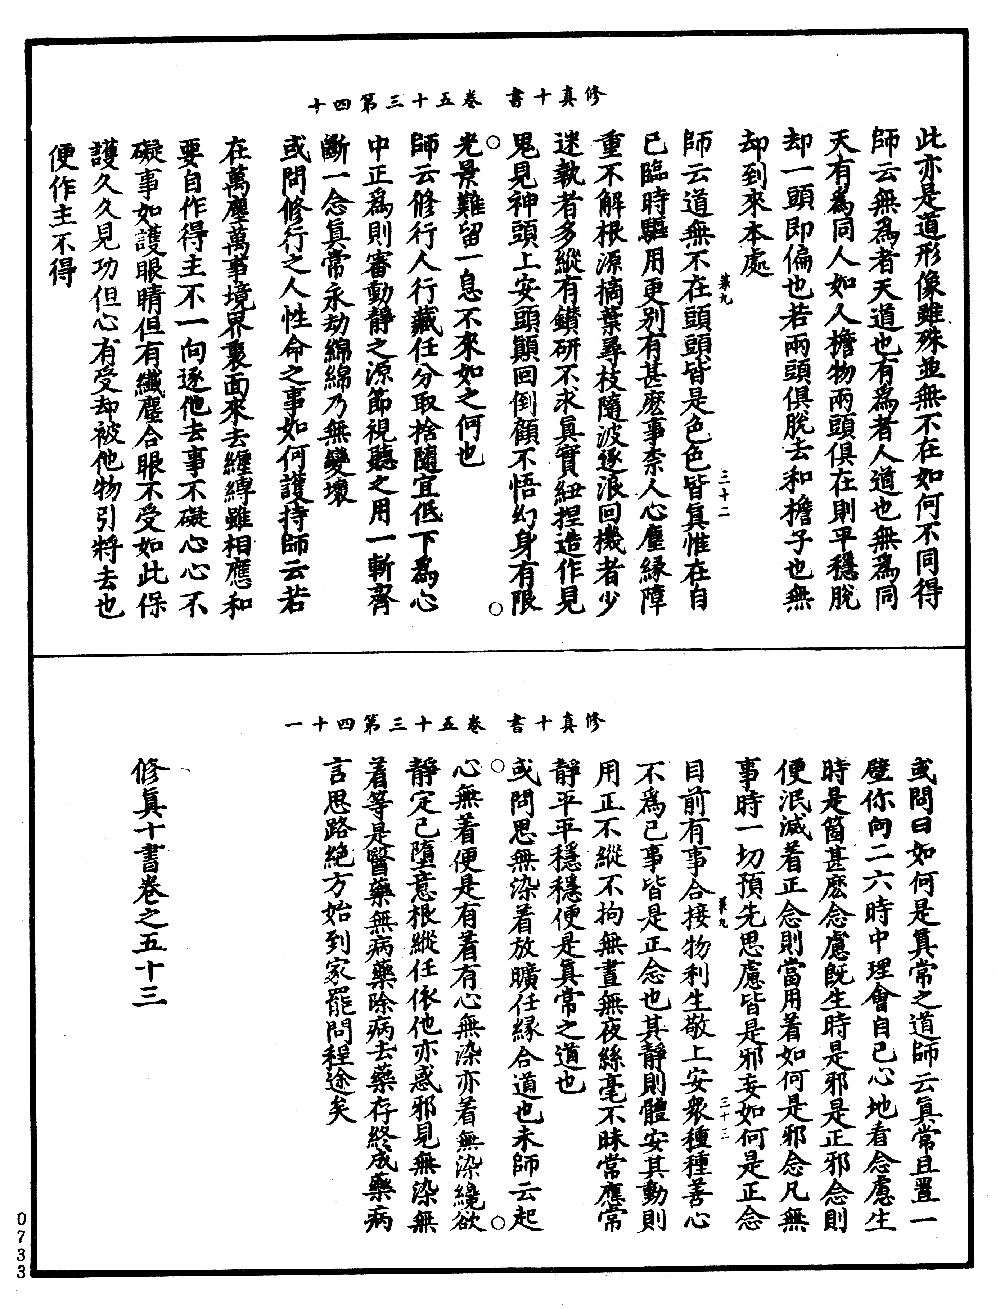 修真十書　卷五十三第四十
此亦是道形像雖殊並無不在如何不同得
師云無爲者天道也有爲者人道也無爲同
天有爲同人如人檐物兩頭俱在則平穩脫
却一頭即偏也若兩頭俱脫去和檐子也無
却到來本處
菓九　三十二
師云道無不在頭頭皆是色色皆真惟在自
已臨時驅用更別有甚麽事柰人心塵緣障
重不解根源摘葉尋枝隨波逐浪回機者少
迷執者多縱有鑚研不求真實紐捏造作見
鬼見神頭上安頭顛回倒顧不悟幻身有限
光景難留一息不來如之何也
師云修行人行藏任分取捨隨宜低下爲心
中正爲則審動靜之源節視聽之用一斬齊
斷一念真常永劫綿綿乃無變壞
或問修行之人性命之事如何護持師云若
在萬塵萬事境界裏面來去纏縛雖相應和
要自作得主不一向逐他去事不礙心心不
礙事如護眼睛但有纖塵合眼不受如此保
護久久見功但心有受却被他物引將去也
便作主不得
修真十書　卷五十三第四十一
或問曰如何是真常之道師云真常且置一
壁你向二六時中理會自已心地看念慮生
時是箇甚麽念慮旣生時是邪是正邪念則
便泯滅着正念則當用着如何是邪念凡無
事時一切預先思慮皆是邪妄如何是正念
菓九　三十三
目前有事合接物利生敬上安衆種種善心
不爲已事皆是正念也其靜則體安其動則
用正不縱不拘無晝無夜絲毫不昧常應常
靜平平穩穩便是真常之道也
或問思無染着放曠任緣合道也未師云起
心無着便是有着有心無染亦着無染纔欲
靜定已墮意根縱任依他亦惑邪見無染無
着等是醫藥無病藥除病去藥存終成藥病
言思路絶方始到家罷問程途矣
修真十書卷之五十三
0733